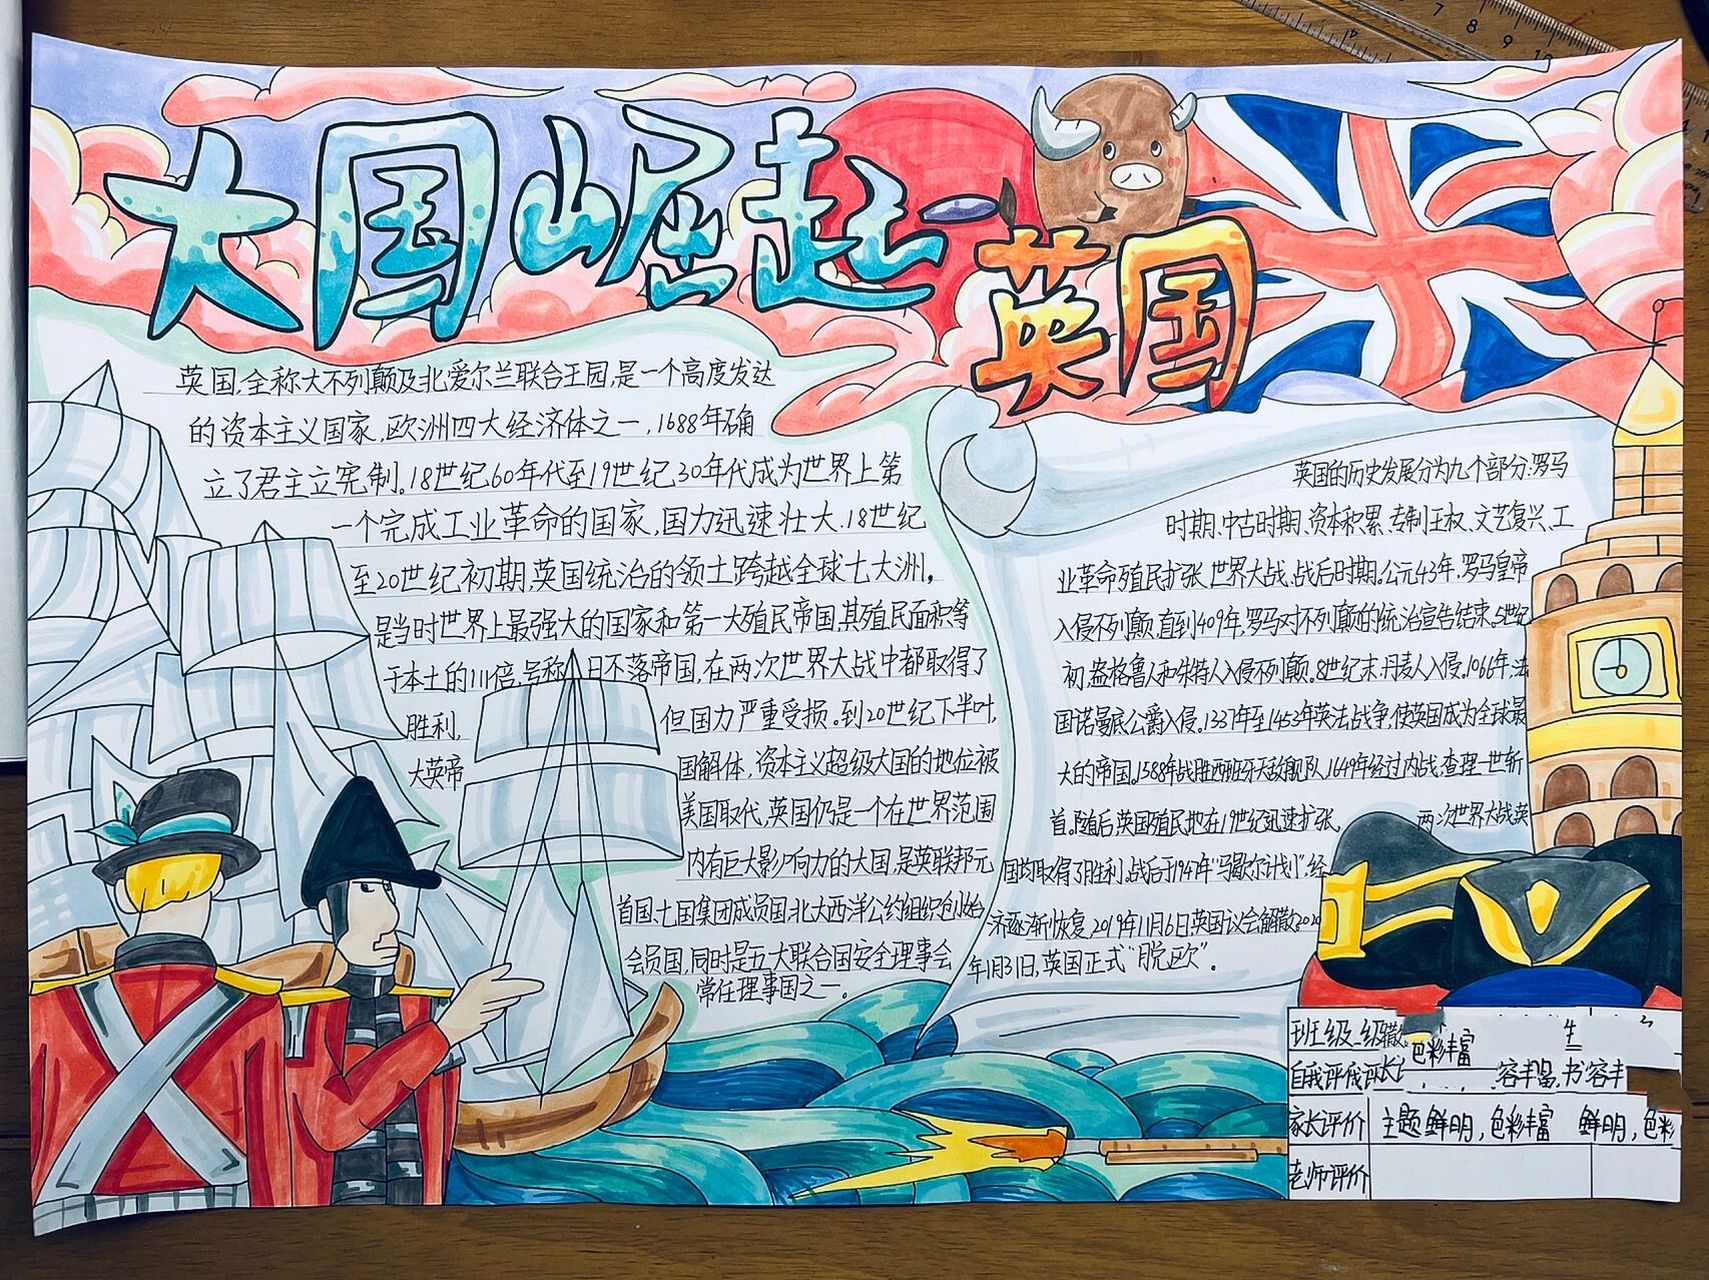 大国崛起
英国
英国,全称大不列颠及北爱尔兰联合王园,是一个高度发达
的资本主义国家,欧洲四大经济体之一,1688年确
立了君主立宪制。18世纪60年代至19世纪30年代成为世界上第
一个完成工业革命的国家,国力迅速壮大.18世纪
至20世纪初期,英国统治的领土跨越全球七大洲,
是当时世界上最强大的国家和第一大殖民帝国,其殖民面积等
于本土的111倍,号称 日不落帝国,在两次世界大战中都取得了
胜利, 但国力严重受损。到20世纪下半叶,
大英帝 国解体,资本主义超级大国的地位被
美国取代,英国仍是一个在世界范围
内有巨大影响力的大国,是英联邦元
首国、七国集团成员国、北大西洋公约组织创始
会员国,同时是五大联合国安全理事会
常任理事国之一。
英国的历史发展分为九个部分:罗马
时期、中古时期、资本积累、专制王权、文艺复兴、工
业革命殖民扩张、世界大战、战后时期。公元43年,罗马皇帝
入侵不列颠,直到409年,罗马对不列颠的统治宣告结束,5世纪
初,盎格鲁人和朱特人入侵不列颠。8世纪末,丹麦人入侵.1066年,法
国诺曼底公爵入侵。1337年至1453年英法战争,使英国成为全球最
大的帝国。1588年战胜西班牙无敌舰队,1649年经过内战,查理一世斩
首。随后,英国殖民地在19世纪迅速扩张, 两次世界大战英
国均取得了胜利,战后于1947年“马歇尔计划”,经
济逐渐恢复,2019年11月6日,英国议会解散,2020
年1月31日,英国正式“脱欧”。
班级 级
色彩丰富
自我评
容丰 容丰
家长评价 主题鲜明,色彩丰富 鲜明,色彩
老师评价